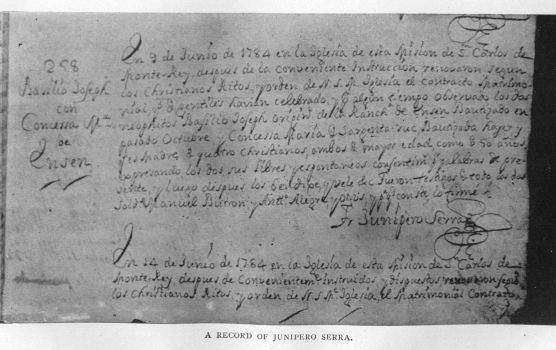 258
Basilio Joseph
con
Concessa Ma
de
Ensen
En 3 de Junio de 1784 en la Iglesia de esta Mision de Sn Carlos de
Monte-Rey, despues de la conveniente Instruccion renovaron segun
los Christianos Ritos, y orden de N. S. M. Iglesia el contrato Matrimo-
nial, q e gentiles havian celebrado, y algun tiempo observado los dos
neophitos Basilio Joseph de la Ranch. de Ensen Bautizado en
pasado Octubre y Concessa Maria de Sargenta-ruc Bautizada hoy, y
es padre quatro Christianos, ambos mayor edad como 50 años,
expresando los dos sus libres, y espontaneos consentim. palabras de pre-
sente, y luego despues los bendixe, y velé &c. Fueron testigos todo los dos
Sold. Manuel Butron y Anto Alegre, y otros, y pa q conste lo firmé
Fr. Junipero Serra
En 14 de Junio de 1784 en la Iglesia de esta Mision de Sn Carlos de
Monte-Rey, despues de Convenientem. instruidos, y dispuestos renovaron segun
los Christianos Ritos, y orden de N. S. M. Iglesia el Matrimonial Contrato
A RECORD OF JUNIPERO SERRA.